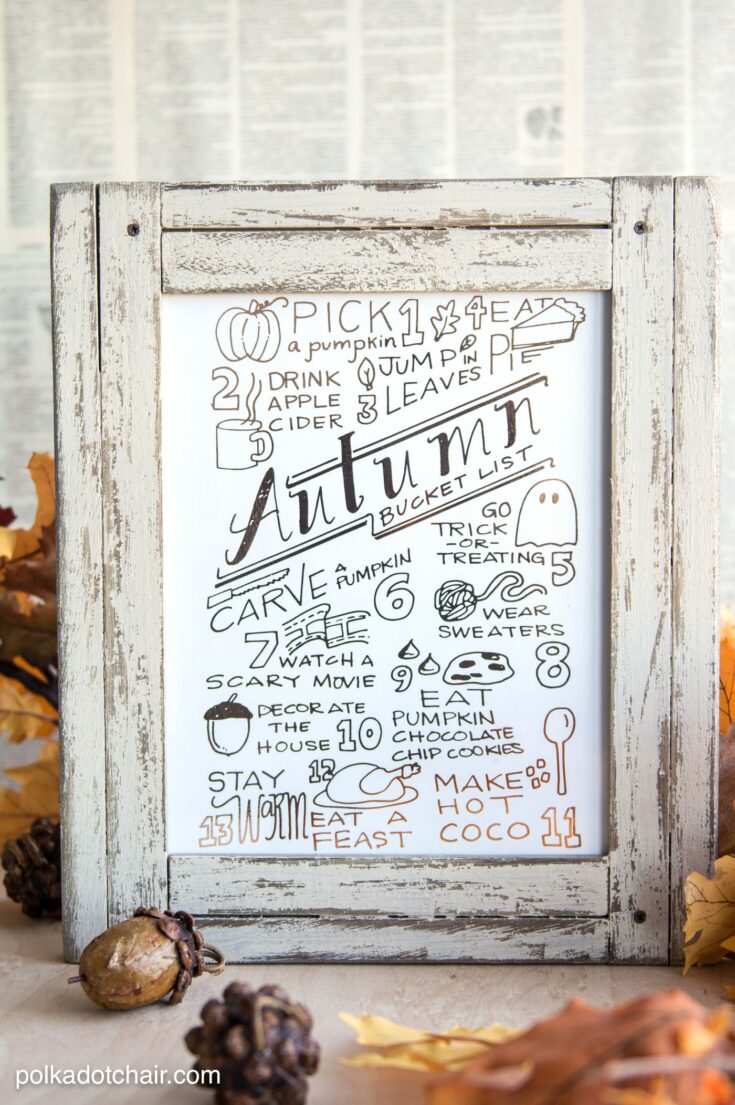 PICK 1
a pumpkin
4 EAT
PIE
2 DRINK
APPLE
CIDER
3 JUMP IN
LEAVES
Autumn
BUCKET LIST
GO
TRICK
-OR-
TREATING 5
CARVE A
PUMPKIN 6
7 WATCH A
SCARY MOVIE
WEAR
SWEATERS
8
9 EAT
PUMPKIN
CHOCOLATE
CHIP COOKIES
DECORATE
THE
HOUSE 10
MAKE
HOT
COCO 11
12
EAT A
FEAST
STAY
13 Warm
polkadotchair.com